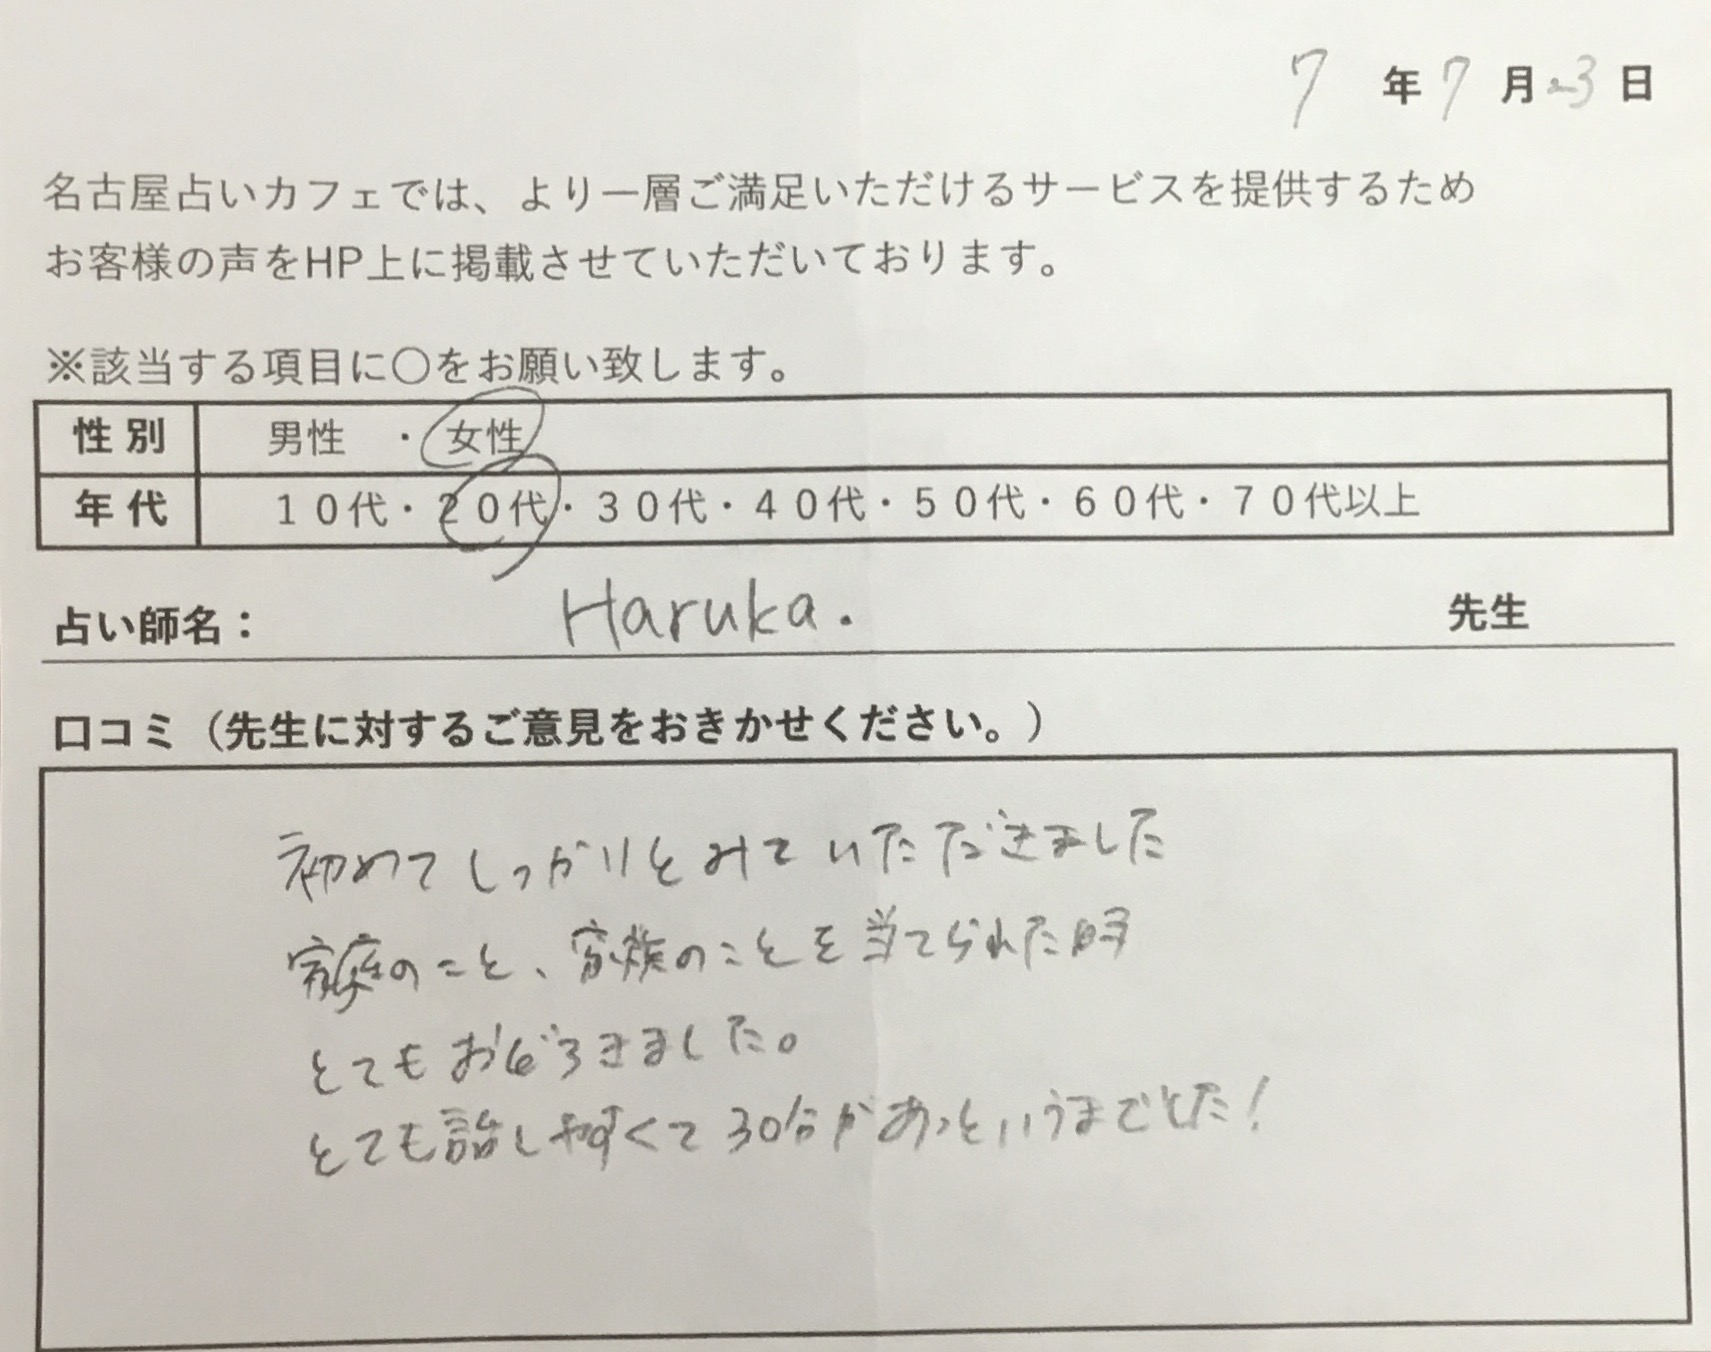 7 年 7 月 23 日
名古屋占いカフェでは、より一層ご満足いただけるサービスを提供するため
お客様の声をHP上に掲載させていただいております。
※該当する項目に〇をお願い致します。
性別 男性 ・ 女性
年代 10代・20代・30代・40代・50代・60代・70代以上
占い師名： Haruka. 先生
口コミ（先生に対するご意見をおきかせください。）
初めてしっかりとみていただきました
家庭のこと、家族のことを当てられた時
とてもおどろきました。
とても話しやすくて30分があっというまでした！